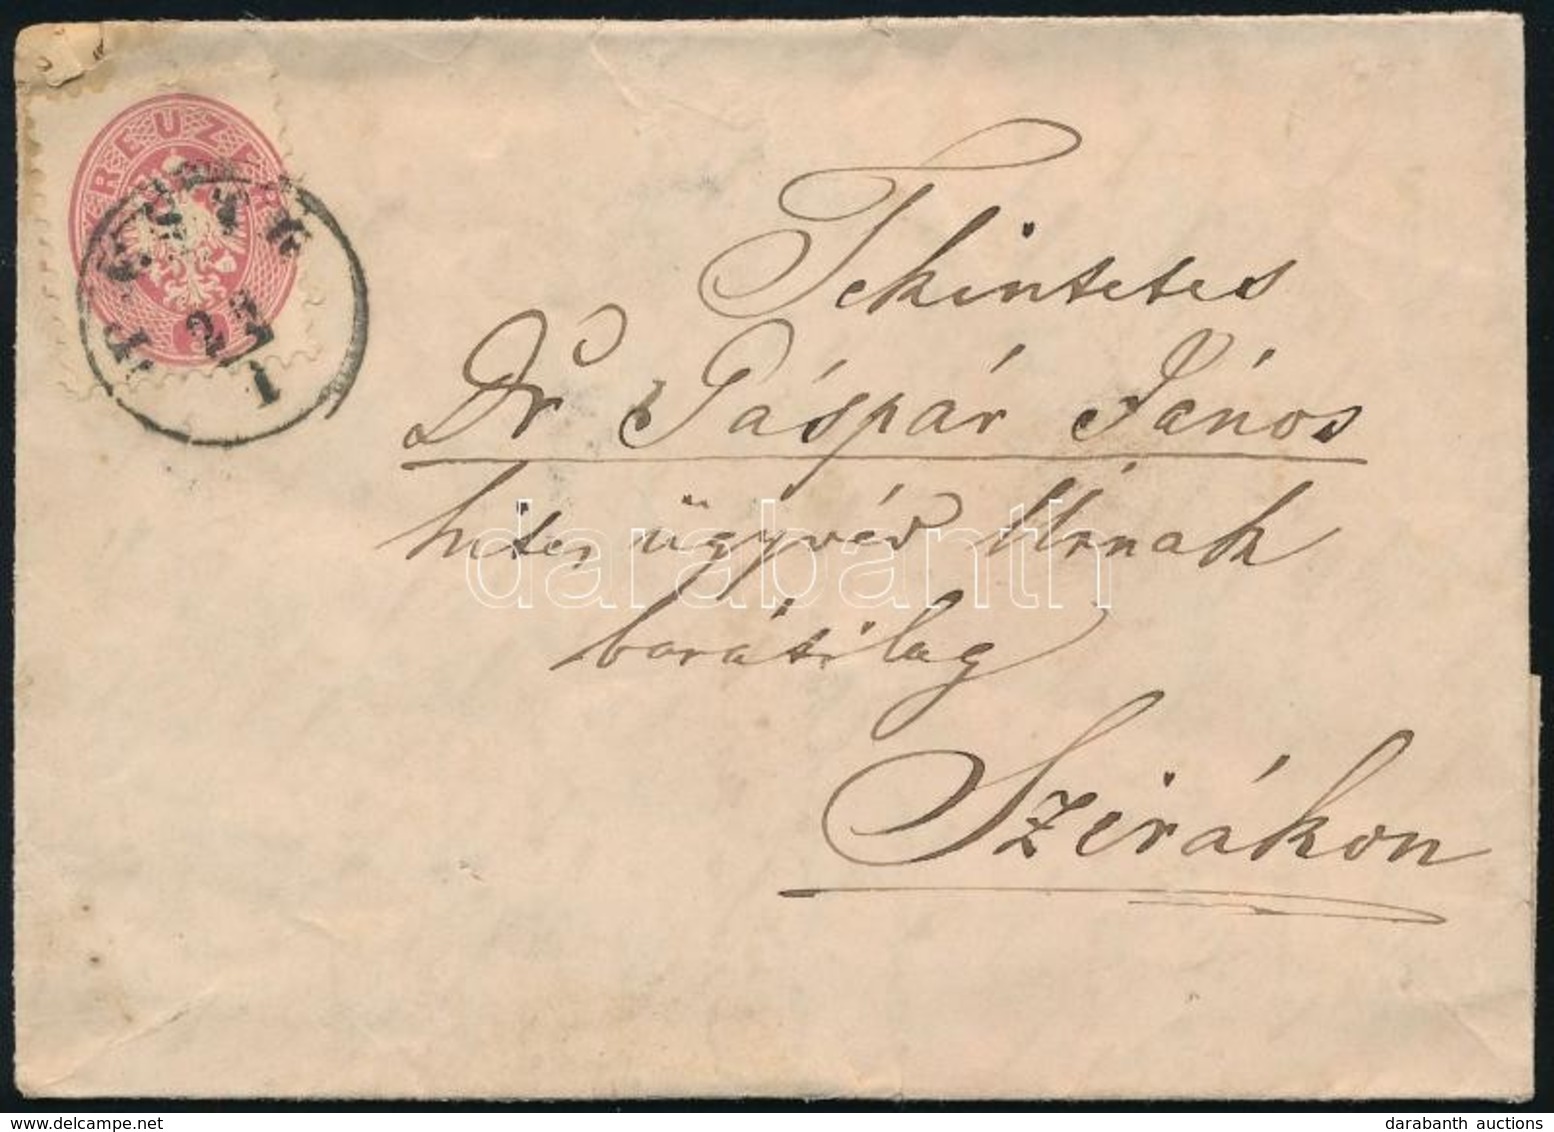 KREUZER
P. GYARM
22
1
Tekintetes
Dr Gáspár János
hites ügyvéd Úrnak
barátilag
Szirákon
darabanth
delcampe.net
darabanth auctions